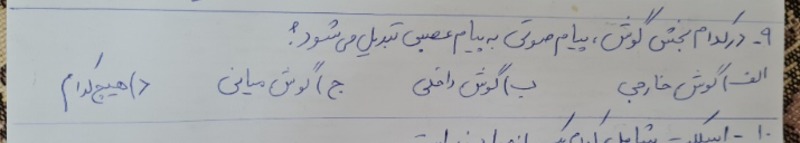 ۹- در کدام بخش گوش، پیام صوتی به پیام عصبی تبدیل می‌شود؟
الف) گوش خارجی ب) گوش داخلی ج) گوش میانی د) هیچ کدام
۱۰-